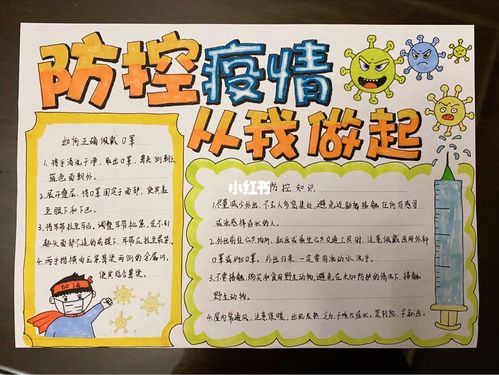 防控疫情
从我做起
如何正确佩戴口罩
1.将手清洗干净,取出口罩,鼻夹侧朝上
蓝色面朝外。
2.展开叠层,将口罩固定于面部,使其盖
至眼下和下巴。
3.将耳带拉至耳后,调整耳带松紧
4.两手指横向压紧鼻梁两侧的金属片,
使其贴合鼻梁。
加油
小红书
防控知识
1.尽量减少外出,不去人多密集处,避免近距离接触任何有感冒
或流感样症状的人。
2.外出前往公共场所,就医或乘坐公共交通工具时,注意佩戴医用外科
口罩或N95口罩,外出归来,一定要用流动水洗手。
3.不要接触,购买和食用野生动物,避免在未加防护的情况下,接触
野生动物。
4.室内常通风,注意保暖,出现发热,乏力,干咳